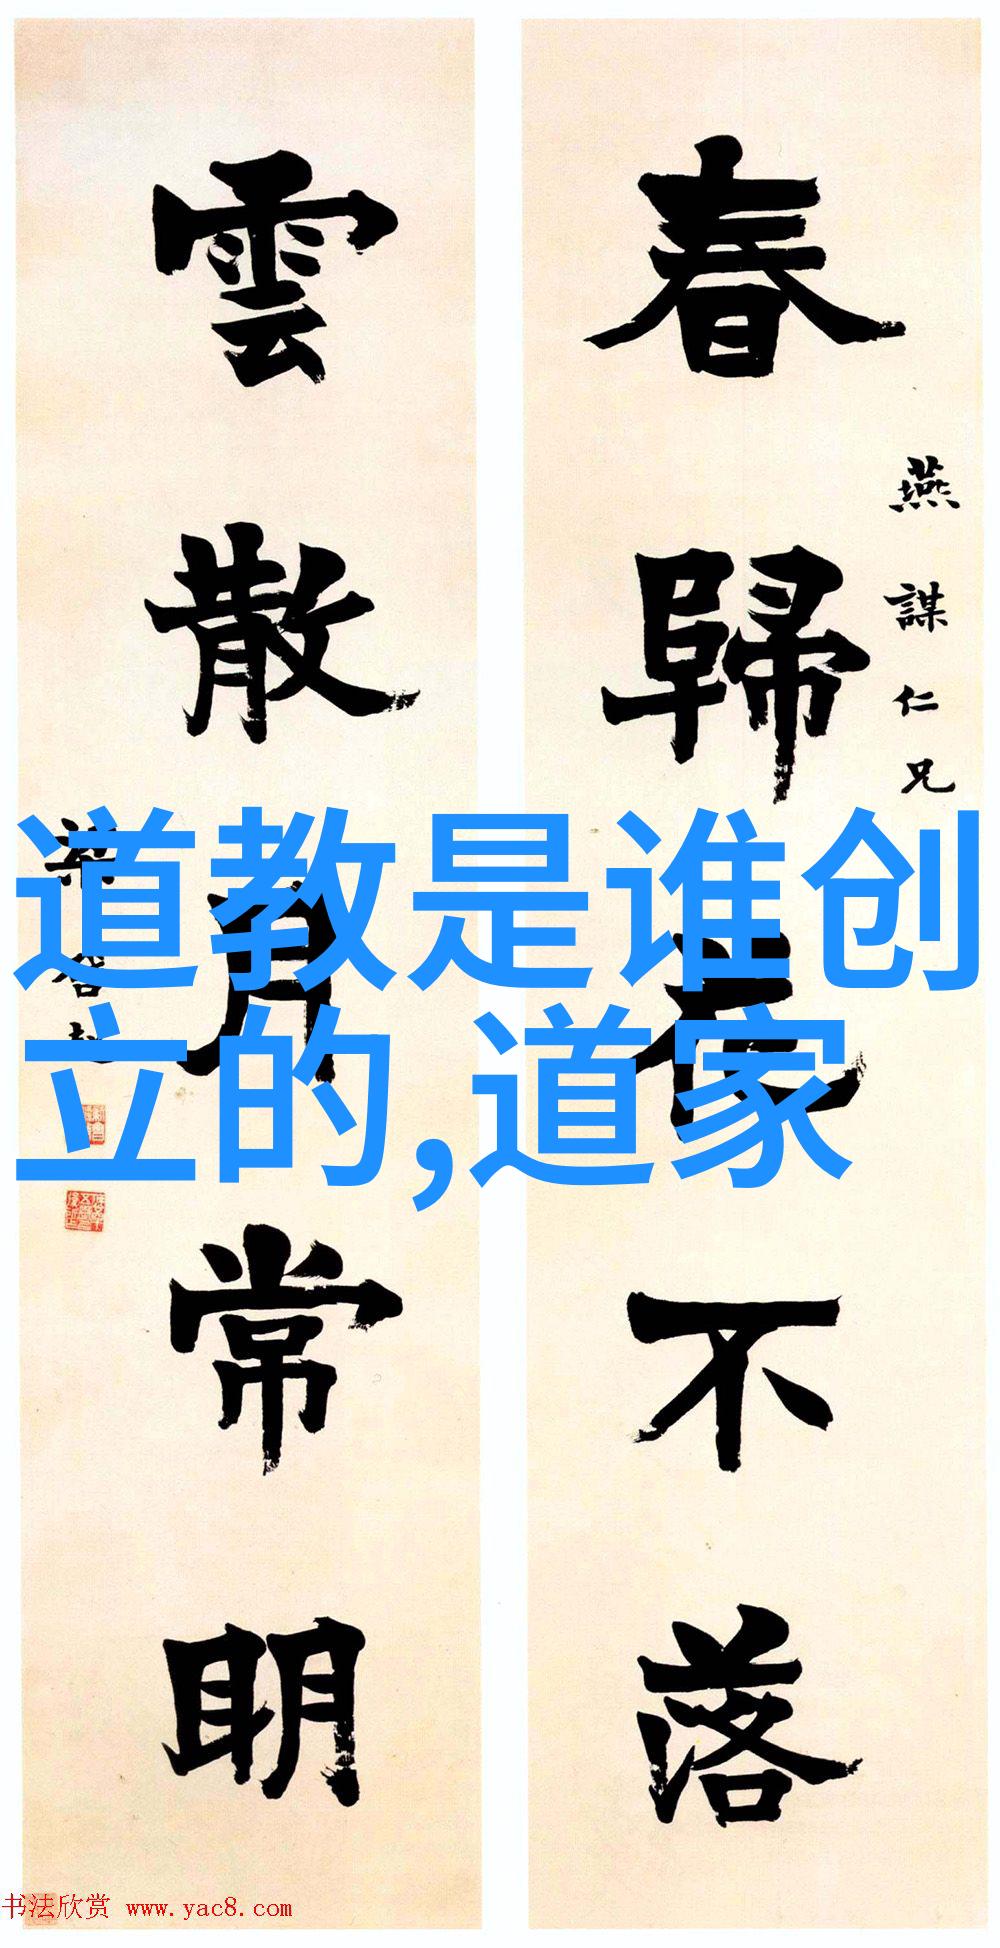 春歸花不落
燕謀仁兄
雲散月常明
梁啟超
道教是谁创
立的,道家
书法欣赏 www.yac8.com